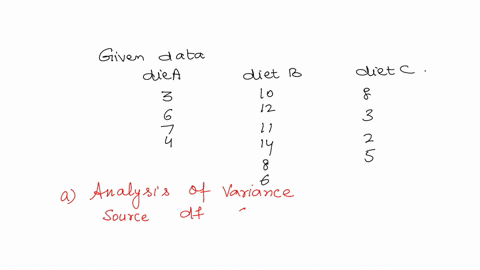 Given data
dieA diet B diet C.
3 10 8
6 12 3
7 11 2
4 14 5
8
6
a) Analysis of Variance
Source df